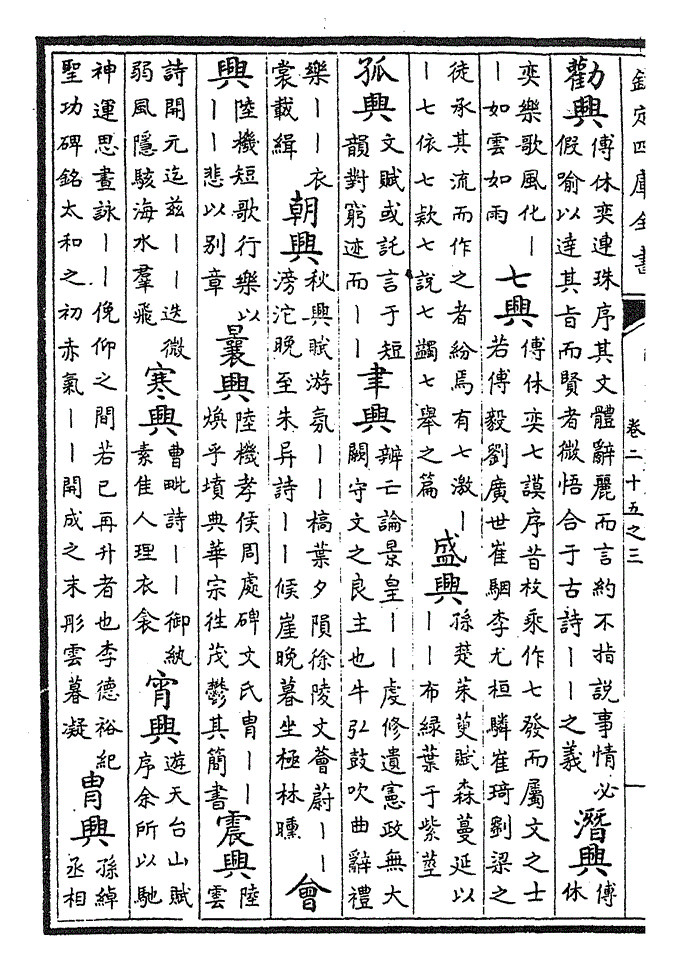 欽定四庫全書
卷二十五之三
勸興 傅休奕連珠序其文體辭麗而言約不指説事情必假喻以達其旨而賢者微悟合于古詩丨丨之義 潛興 傅休
奕樂歌風化丨丨如雲如雨 七興 傅休奕七謨序昔枚乘作七發而屬文之士若傅毅劉廣世崔駰李尤桓驎崔琦劉梁之
徒承其流而作之者紛焉有七激丨丨七依七欵七説七蠲七舉之篇 盛興 孫楚茱萸賦森蔓延以丨丨布緑葉于紫莖
孤興 文賦或託言于短韻對窮迹而丨丨 聿興 辨亡論景皇丨丨虔修遺憲政無大闕守文之良主也牛弘鼓吹曲辭禮
樂丨丨衣裳載緝 朝興 秋興賦游氛丨丨槁葉夕隕徐陵文薈蔚丨丨滂沱晚至朱异詩丨丨候崖晚暮坐極林曛 會
興 陸機短歌行樂以丨丨悲以别章 曩興 陸機孝侯周處碑文氏胄丨丨煥乎墳典華宗徃茂鬱其簡書 震興 陸雲
詩開元迄兹丨丨迭微弱風隱駭海水羣飛 寒興 曹毗詩丨丨御紈素佳人理衣衾 宵興 遊天台山賦序余所以馳
神運思晝詠丨丨俛仰之間若已再升者也李德裕紀聖功碑銘太和之初赤氣丨丨開成之末彤雲暮凝 胄興 孫綽丞相